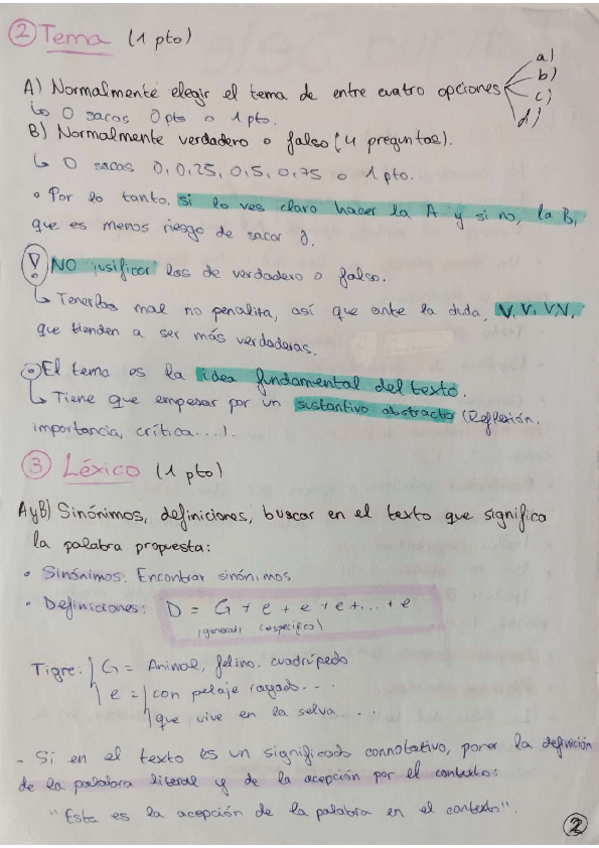 ② Tema (1 pto)
A) Normalmente elegir el tema de entre cuatro opciones a) b) c) d)
↳ O sacas 0 pts o 1 pto.
B) Normalmente verdadero o falso (4 preguntas).
↳ O sacas 0, 0,25, 0,5, 0,75 o 1 pto.
• Por lo tanto, si lo ves claro hacer la A y si no, la B,
que es menos riesgo de sacar 0.
! NO jusificar los de verdadero o falso.
↳ Tenerlas mal no penaliza, así que ante la duda, V.V.V.V.
que tienden a ser más verdaderas.
El tema es la idea fundamental del texto.
↳ Tiene que empezar por un sustantivo abstracto (Reflexión,
importancia, crítica...).
③ Léxico (1 pto)
AyB) Sinónimos, definiciones, buscar en el texto que significa
la palabra propuesta:
• Sinónimos: Encontrar sinónimos
• Definiciones: D = G + e + e + e + ... + e
(general) (específico)
Tigre: G = Animal, felino, cuadrúpedo
e = con pelaje rayado...
que vive en la selva....
- Si en el texto es un significado connotativo, poner la definición
de la palabra literal y de la acepción por el contexto:
"Esta es la acepción de la palabra en el contexto".
2